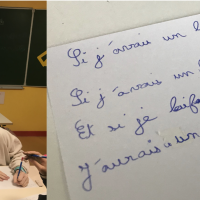 Si j'avais un
Si j'avais un
Et si je
J'aurais un